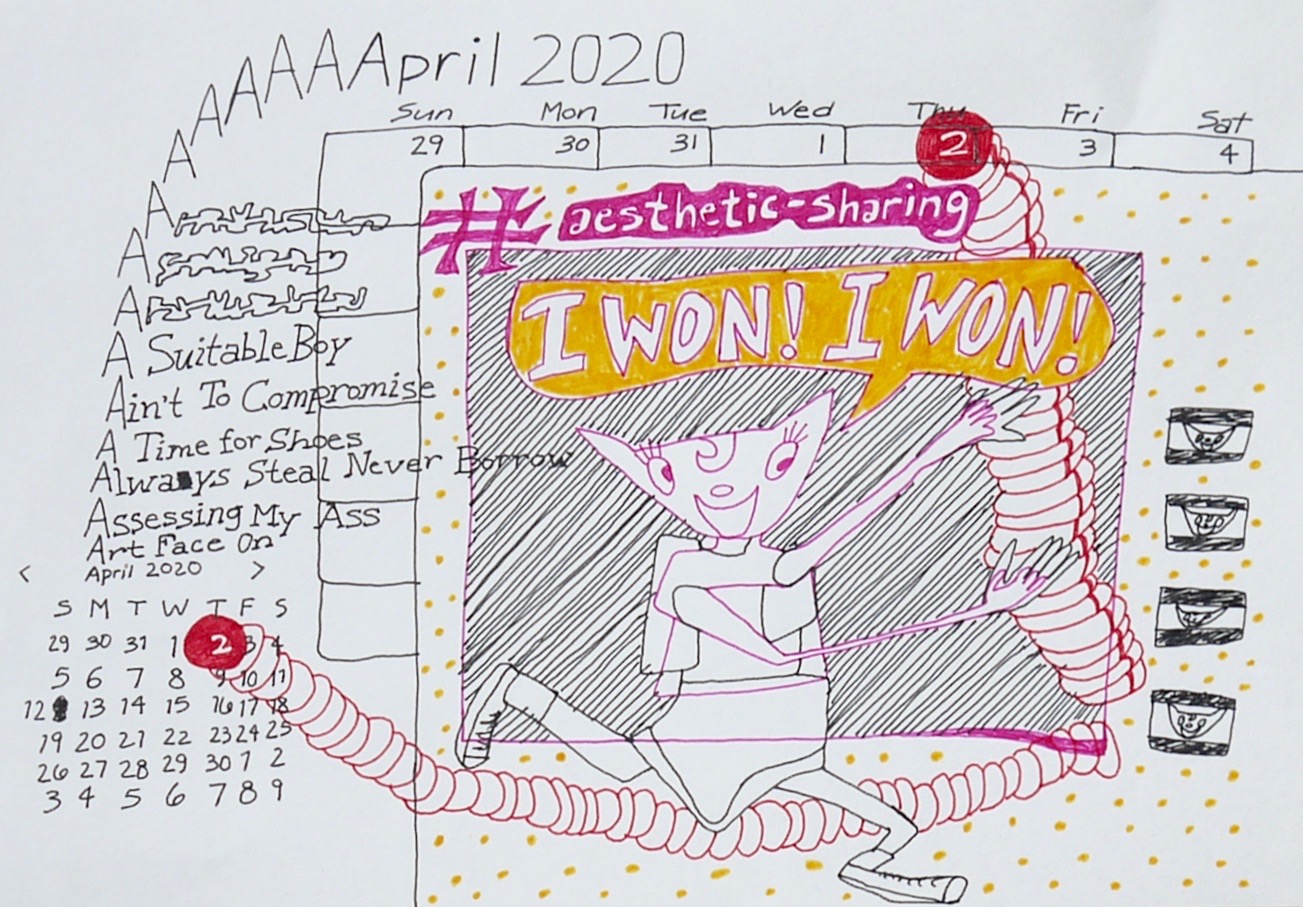 AAAAAApril 2020
Sun Mon Tue Wed Thu Fri Sat
29 30 31 1 2 3 4
#aesthetic-sharing
I WON! I WON!
A
A
A
A
A
A Suitable Boy
Ain't To Compromise
A Time for Shoes
Always Steal Never Borrow
Assessing My Ass
Art Face On
< April 2020 >
S M T W T F S
29 30 31 1 2 3 4
5 6 7 8 9 10 11
12 13 14 15 16 17 18
19 20 21 22 23 24 25
26 27 28 29 30 1 2
3 4 5 6 7 8 9